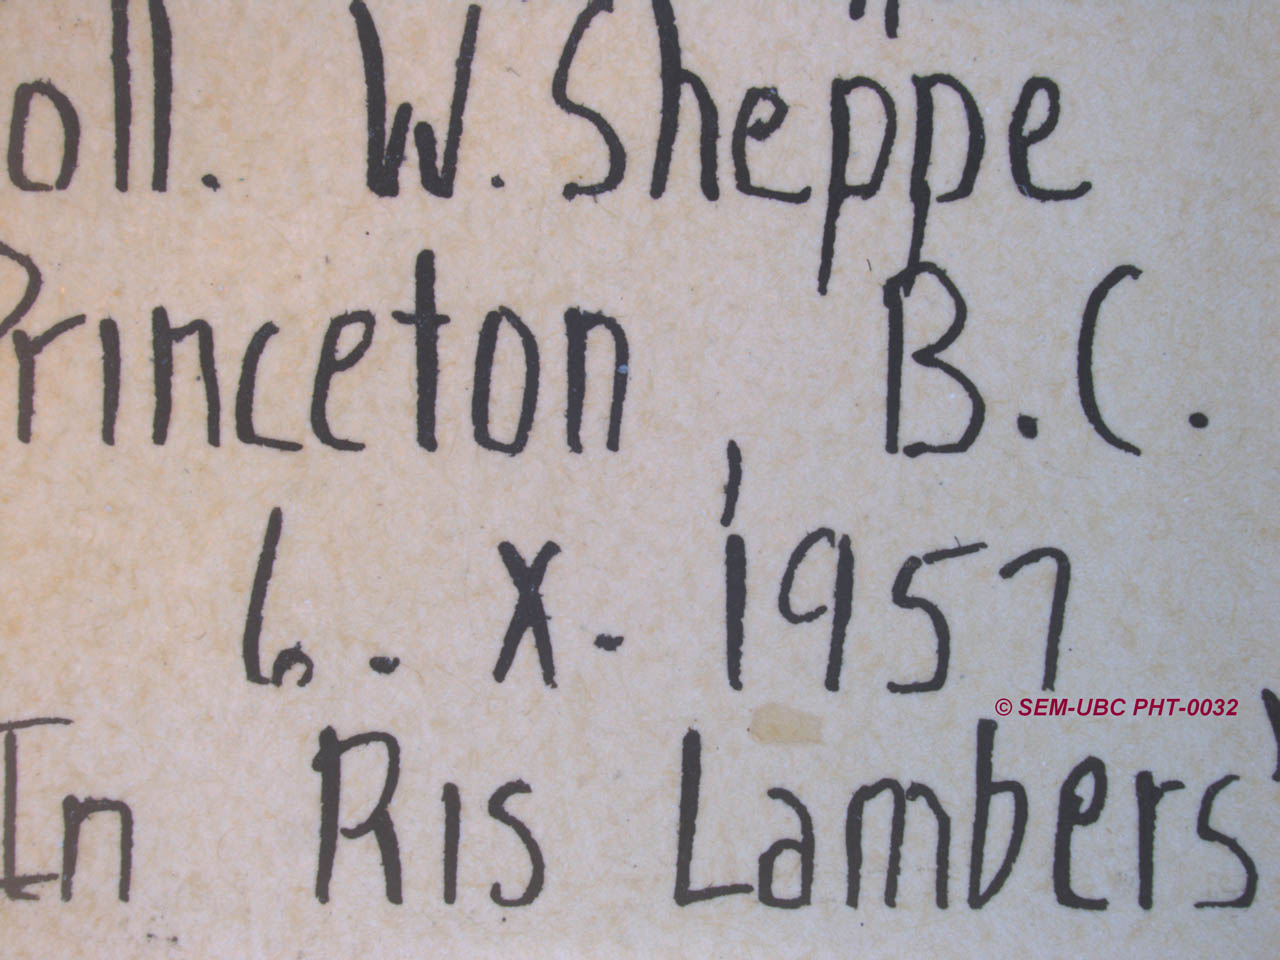 oll. W. Sheppe
Princeton B.C.
6. X. 1957
© SEM-UBC PHT-0032
In Ris Lambers'